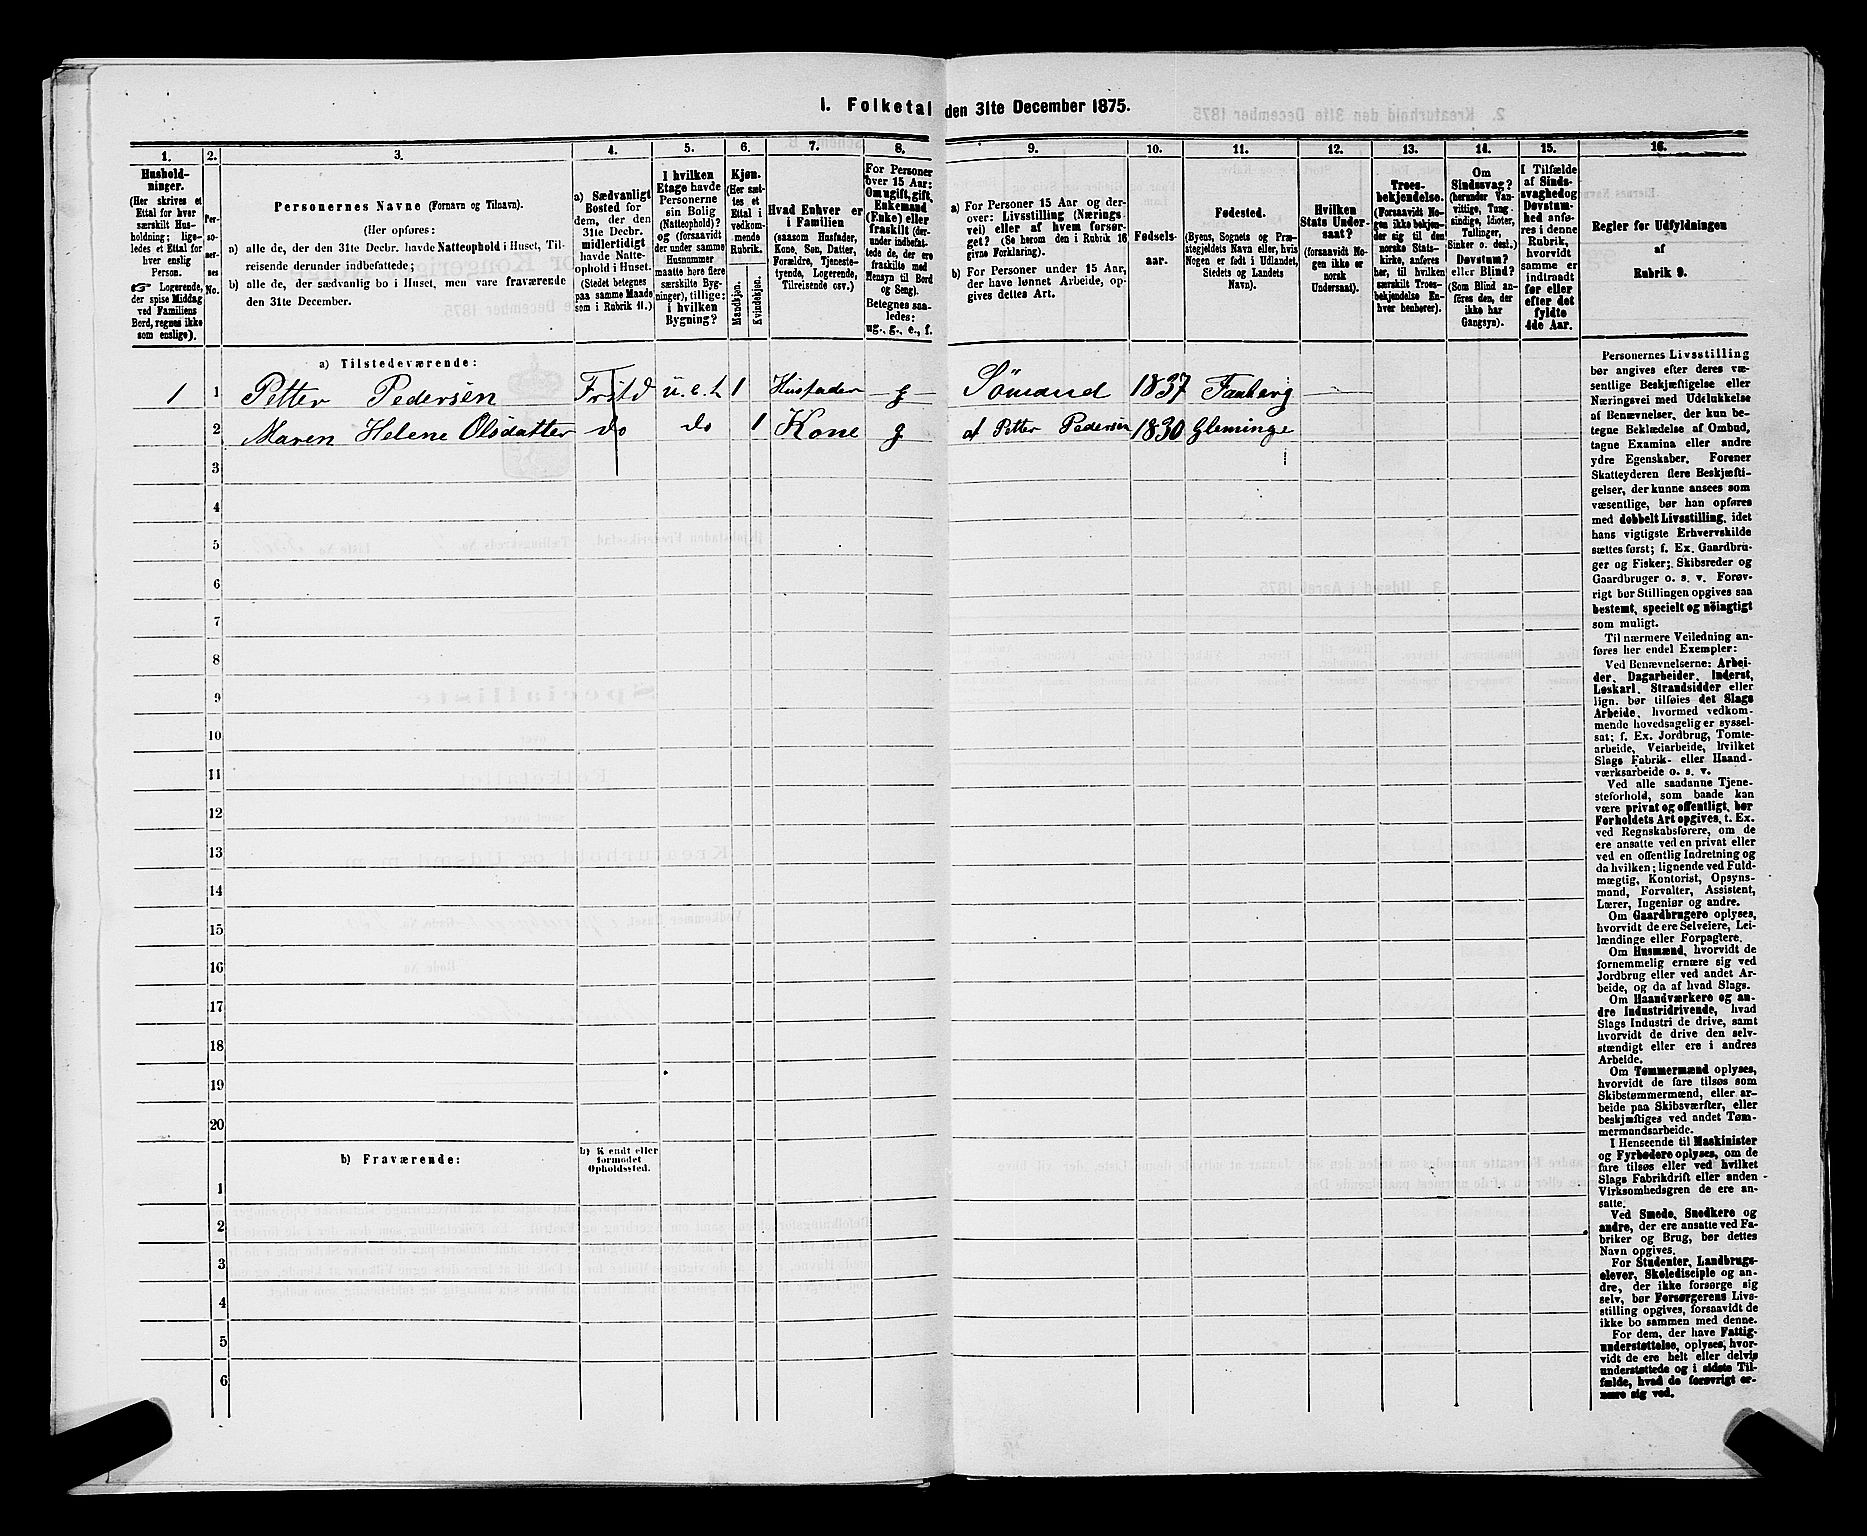 1. Folketal den 31te December 1875.
1. 2. 3. 4. 5. 6. 7. 8. 9. 10. 11. 12. 13. 14. 15. 16.
Hushold-
ninger.
(Her skrives et
Ettal for hver
særskilt Hus-
holdning; lige-
ledes et Ettal for
hver enslig
Person.
☞ Logerende,
der spise Middag
ved Familiens
Bord, regnes ikke
som enslige).
Per-
so-
ner-
nes
No.
Personernes Navne (Fornavn og Tilnavn).
(Her opføres:
a) alle de, der den 31te Decbr. havde Natteophold i Huset, Til-
reisende derunder indbefattede;
b) alle de, der sædvanlig bo i Huset, men vare fraværende
den 31te December.
a) Sædvanligt
Bosted for
dem, der den
31te Decbr.
midlertidigt
havde Natte-
ophold i Huset.
(Stedet betegnes
paa samme Maade
som i Rubrik 11.)
I hvilken
Etage havde
Personerne
sin Bolig
(Natteophold)?
og (forsaavidt
der under samme
Husnummer
maatte høre flere
særskilte Byg-
ninger), tillige:
i hvilken
Bygning?
Kjøn.
(Her sæt-
tes et
Ettal i
vedkom-
mende
Rubrik.
Mandkjøn.
Kvindekjøn.
Hvad Enhver er
i Familien
(saasom Husfader,
Kone, Søn, Datter,
Forældre, Tjeneste-
tyende, Logerende,
Tilreisende osv.)
For Personer
over 15 Aar:
Om ugift, gift,
Enkemand
(Enke) eller
fraskilt (der-
under indbefat-
tede de, der ere
fraskilte med
Hensyn til Bord
og Seng).
Betegnes saa-
ledes:
ug., g., e., f.
a) For Personer 15 Aar og der-
over: Livsstilling (Nærings-
vei) eller af hvem forsør-
get? (Se herom den i Rubrik 16
givne Forklaring).
b) For Personer under 15 Aar,
der have lønnet Arbeide, op-
gives dettes Art.
Fødsels-
aar.
Fødested.
(Byens, Sognets og Præ-
stegjeldets Navn eller, hvis
Nogen er født i Udlandet,
Stedets og Landets
Navn).
Hvilken
Stats Under-
saat?
(forsaavidt No-
gen ikke er
norsk
Undersaat).
Troes-
bekjendelse.
(Forsaavidt No-
gen ikke bekjen-
der sig til den
norske Stats-
kirke, anføres
her, til hvilken
særskilt Troes-
bekjendelse En-
hver henhører).
Om
Sindssvag?
(herunder Van-
vittige, Tung-
sindige, Idioter,
Tullinger,
Sinker o. desl.)
Døvstum?
eller Blind?
(Som Blind an-
føres den, der
ikke har
Gangsyn).
I Tilfælde
af Sinds-
svaghed og
Døvstum-
hed anfø-
res i denne
Rubrik,
hvorvidt
samme er
indtraadt
før eller
efter det
fyldte
4de Aar.
Regler for Udfyldningen
af
Rubrik 9.
a) Tilstedeværende:
1 1 Petter Pedersen Frstd u.e.t 1 Husfader g Sömand 1837 Faaberg
2 Maren Helene Olsdatter do do 1 Kone g af Petter Pedersen 1830 Gleminge
3
4
5
6
7
8
9
10
11
12
13
14
15
16
17
18
19
20
b) Fraværende:
b) Kjendt eller
formodet
Opholdssted.
1
2
3
4
5
6
Personernes Livsstilling
bør angives efter deres væ-
sentlige Beskjæftigelse eller
Næringsvei med Udelukkelse
af Benævnelser, der kun be-
tegne Beklædelse af Ombud,
tagne Examina eller andre
ydre Egenskaber. Forener
Skatteyderen flere Beskjæfti-
gelser, der kunne ansees som
væsentlige, bør han opføres
med dobbelt Livsstilling, idet
hans vigtigste Erhvervskilde
sættes først; f. Ex. Gaardbru-
ger og Fisker; Skibsreder og
Gaardbruger o. s. v. Forøv-
rigt bør Stillingen opgives saa
bestemt, specielt og nöiagtigt
som muligt.
Til nærmere Veiledning an-
føres her endel Exempler:
Ved Benævnelserne: Arbei-
der, Dagarbeider, Inderst,
Løskarl, Strandsidder eller
lign. bør tilføies det Slags
Arbeide, hvormed vedkom-
mende hovedsagelig er syssel-
sat; f. Ex. Jordbrug, Tomte-
arbeide, Veiarbeide, hvilket
Slags Fabrik- eller Haand-
værksarbeide o. s. v.
Ved alle saadanne Tjene-
steforhold, som baade kan
være privat og offentligt, bør
Forholdets Art opgives, t. Ex.
ved Regnskabsførere, om de
ere ansatte ved en privat eller
ved en offentlig Indretning og
da hvilken; lignende ved Fuld-
mægtig, Kontorist, Opsyns-
mand, Forvalter, Assistent,
Lærer, Ingeniør og andre.
Om Gaardbrugere oplyses,
hvorvidt de ere Selveiere, Lei-
lændinge eller Forpagtere.
Om Husmænd, hvorvidt de
fornemmelig ernære sig ved
Jordbrug eller ved andet Ar-
beide, og da af hvad Slags.
Om Haandværkere og an-
dre Industridrivende, hvad
Slags Industri de drive, samt
hvorvidt de drive den selv-
stændigt eller ere i andres
Arbeide.
Om Tømmermænd oplyses,
hvorvidt de fare tilsøs som
Skibstømmermænd, eller ar-
beide paa Skibsværfter, eller
beskjæftiges ved andet Tøm-
mermandsarbeide.
I Henseende til Maskinister
og Fyrbødere oplyses, om de
fare tilsøs eller ved hvilket
Slags Fabrikdrift eller anden
Virksomhedsgren de ere an-
satte.
Ved Smede, Snedkere og
andre, der ere ansatte ved Fa-
briker og Brug, bør dettes
Navn opgives.
For Studenter, Landbrugs-
elever, Skoledisciple og an-
dre, der ikke forsørge sig
selv, bør Forsørgerens Livs-
stilling opgives, forsaavidt de
ikke bo sammen med denne.
For dem, der have Fattig-
understøttelse, oplyses, hvor-
vidt de ere helt eller delvis
understøttede og i sidste Til-
fælde, hvad de forøvrigt er-
nære sig ved.